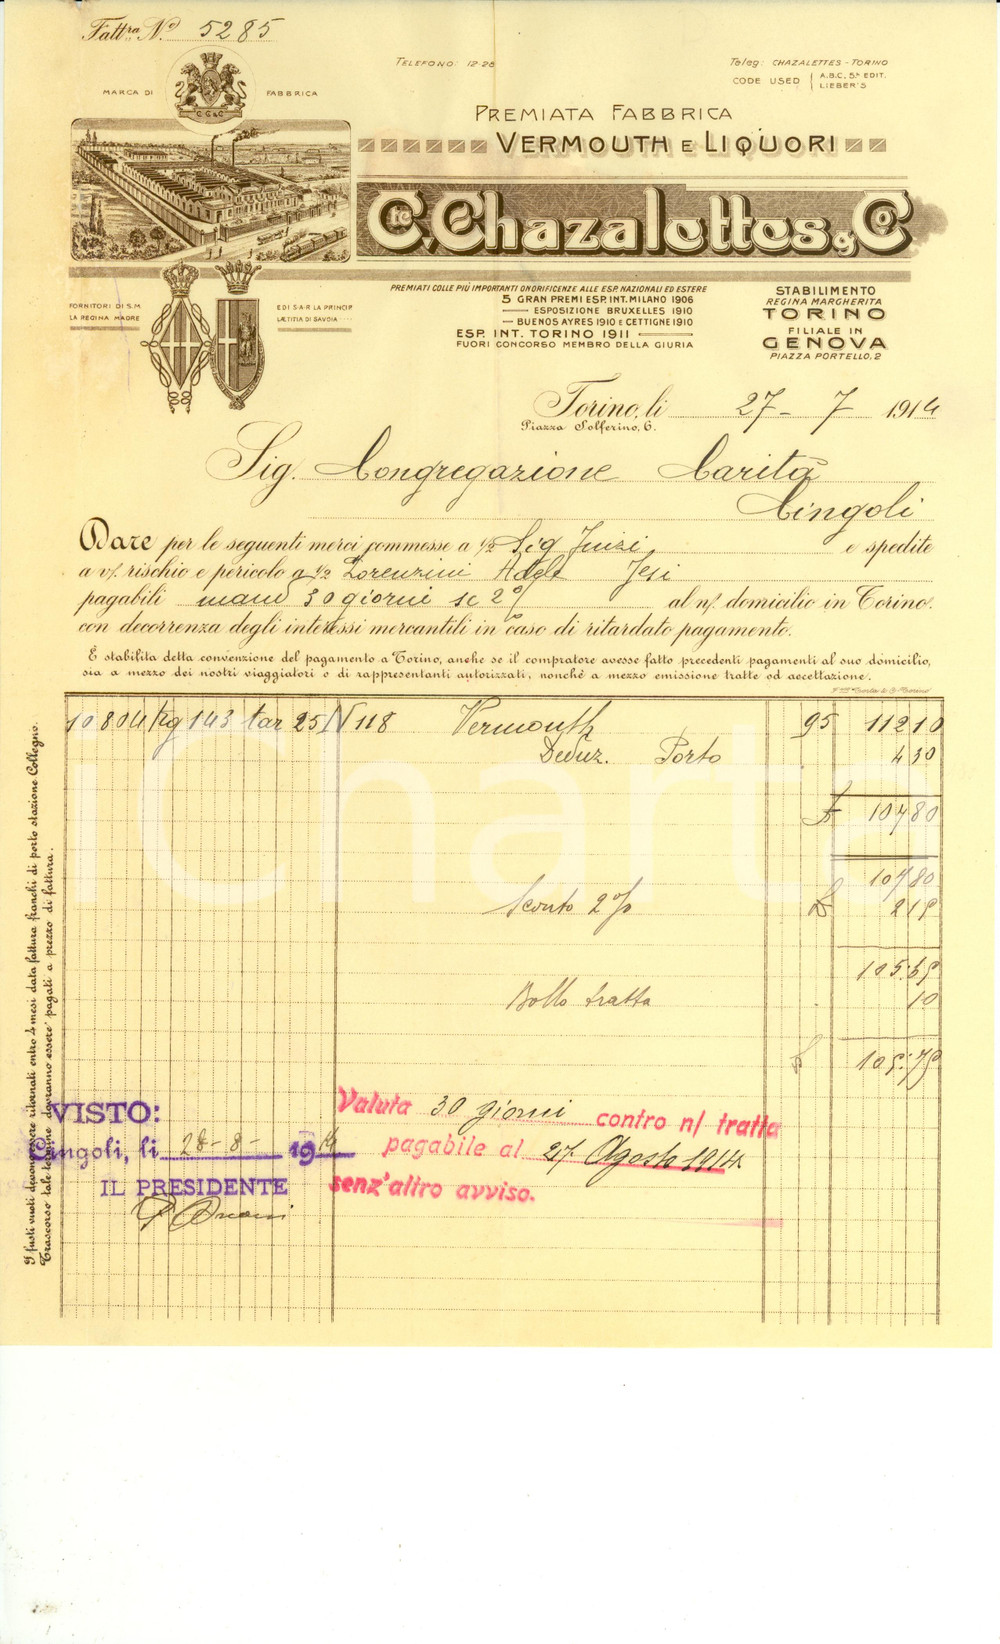 Fattra No 5285
TELEFONO: 12-28
Teleg: CHAZALETTES - TORINO
CODE USED A.B.C. 5a EDIT. LIEBER'S
MARCA DI FABBRICA
C.C.&C.
PREMIATA FABBRICA
VERMOUTH E LIQUORI
C. Chazalettes & Co
FORNITORI DI S.M.
LA REGINA MADRE
E DI S.A.R LA PRINCIP.
LÆTITIA DI SAVOIA
PREMIATI COLLE PIÙ IMPORTANTI ONORIFICENZE ALLE ESP. NAZIONALI ED ESTERE
5 GRAN PREMI ESP. INT. MILANO 1906
ESPOSIZIONE BRUXELLES 1910
BUENOS AYRES 1910 E CETTIGNE 1910
ESP. INT. TORINO 1911
FUORI CONCORSO MEMBRO DELLA GIURIA
STABILIMENTO
REGINA MARGHERITA
TORINO
FILIALE IN
GENOVA
PIAZZA PORTELLO, 2
Torino, li 27 - 7 1914
Piazza Solferino, 6.
Sig. Congregazione Carità
Cingoli
Dare per le seguenti merci commesse a 1/2 Sig e spedite
a v/. rischio e pericolo a 1/2 Lorenzini Jesi
pagabili 30 giorni sc 2% al n/. domicilio in Torino.
con decorrenza degli interessi mercantili in caso di ritardato pagamento.
È stabilita detta convenzione del pagamento a Torino, anche se il compratore avesse fatto precedenti pagamenti al suo domicilio,
sia a mezzo dei nostri viaggiatori o di rappresentanti autorizzati, nonchè a mezzo emissione tratte od accettazione.
10804 Kg 143 tar 25 N 118 Vermouth 95 11210
Deduz. Porto 430
£ 10780
10780
Sconto 2% £ 215
105.65
Bollo tratta 10
£ 105.75
I fusti vuoti devono essere ritornati entro 4 mesi data fattura franchi di porto stazione Collegno.
Trascorso tale termine dovranno essere pagati a prezzo di fattura.
VISTO:
Cingoli, li 28 - 8 - 1914
IL PRESIDENTE
Valuta 30 giorni contro n/ tratta
pagabile al 27 Agosto 1914
senz'altro avviso.
iCharta